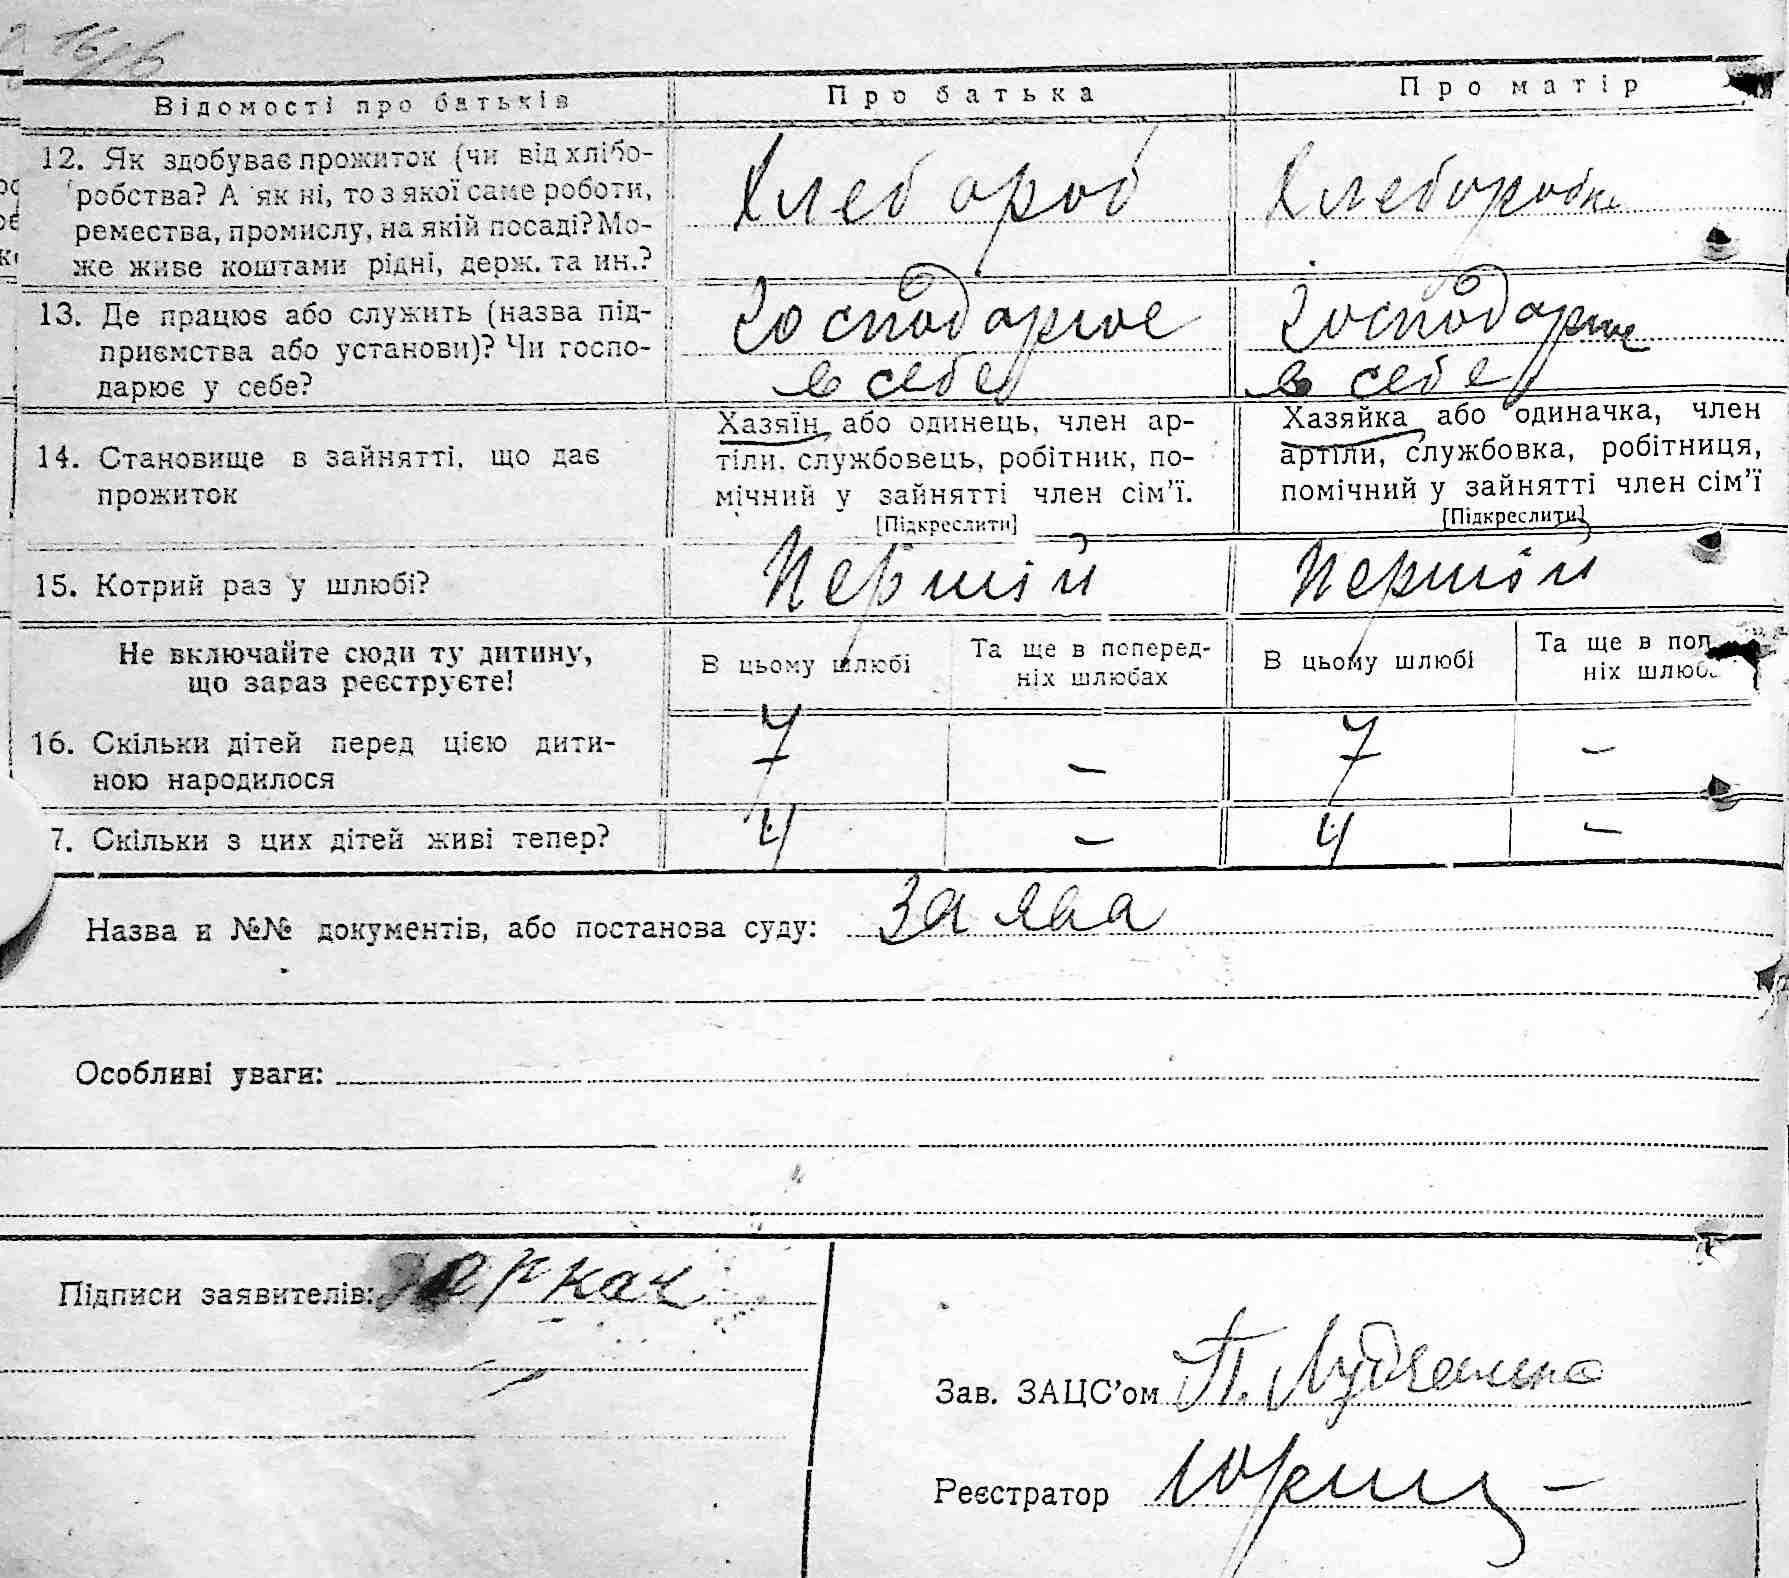 16/6
Відомості про батьків
Про батька
Про матір
12. Як здобуває прожиток (чи від хлібо-
робства? А як ні, то з якої саме роботи,
ремества, промислу, на якій посаді? Мо-
же живе коштами рідні, держ. та ин.?
Хлебороб
Хлеборобка
13. Де працює або служить (назва під-
приємства або установи)? Чи госпо-
дарює у себе?
Господарює
в себе
Господарює
в себе
14. Становище в зайнятті, що дає
прожиток
Хазяїн або одинець, член ар-
тіли, службовець, робітник, по-
мічний у зайнятті член сім'ї.
[Підкреслити]
Хазяйка або одиначка, член
артіли, службовка, робітниця,
помічний у зайнятті член сім'ї
[Підкреслити]
15. Котрий раз у шлюбі?
Першій
Першій
Не включайте сюди ту дитину,
що зараз реєструєте!
В цьому шлюбі
Та ще в поперед-
ніх шлюбах
В цьому шлюбі
Та ще в поп
ніх шлюб
16. Скільки дітей перед цією дити-
ною народилося
7 – 7 –
7. Скільки з цих дітей живі тепер?
4 – 4 –
Назва и №№ документів, або постанова суду: Заява
Особливі уваги:
Підписи заявителів: Деркач
Зав. ЗАЦС'ом П.
Реєстратор